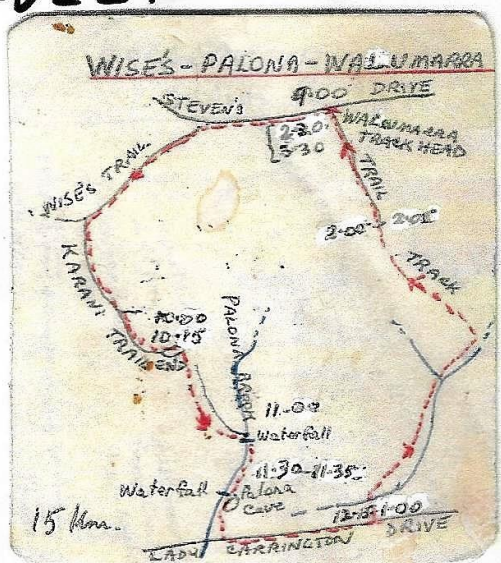 WISE'S - PALONA - WALUMARRA
STEVEN'S
9.00 DRIVE
2-30.
3-30
WALUMARRA
TRACK HEAD
TRAIL
WISE'S TRAIL
2-00
TRACK
KARANI
TRAIL END
10-15
PALONA BROOK
11-00
Waterfall
11-30-11-35
Waterfall
Palona
Cave
15 Km.
1-00
LADY CARRINGTON DRIVE